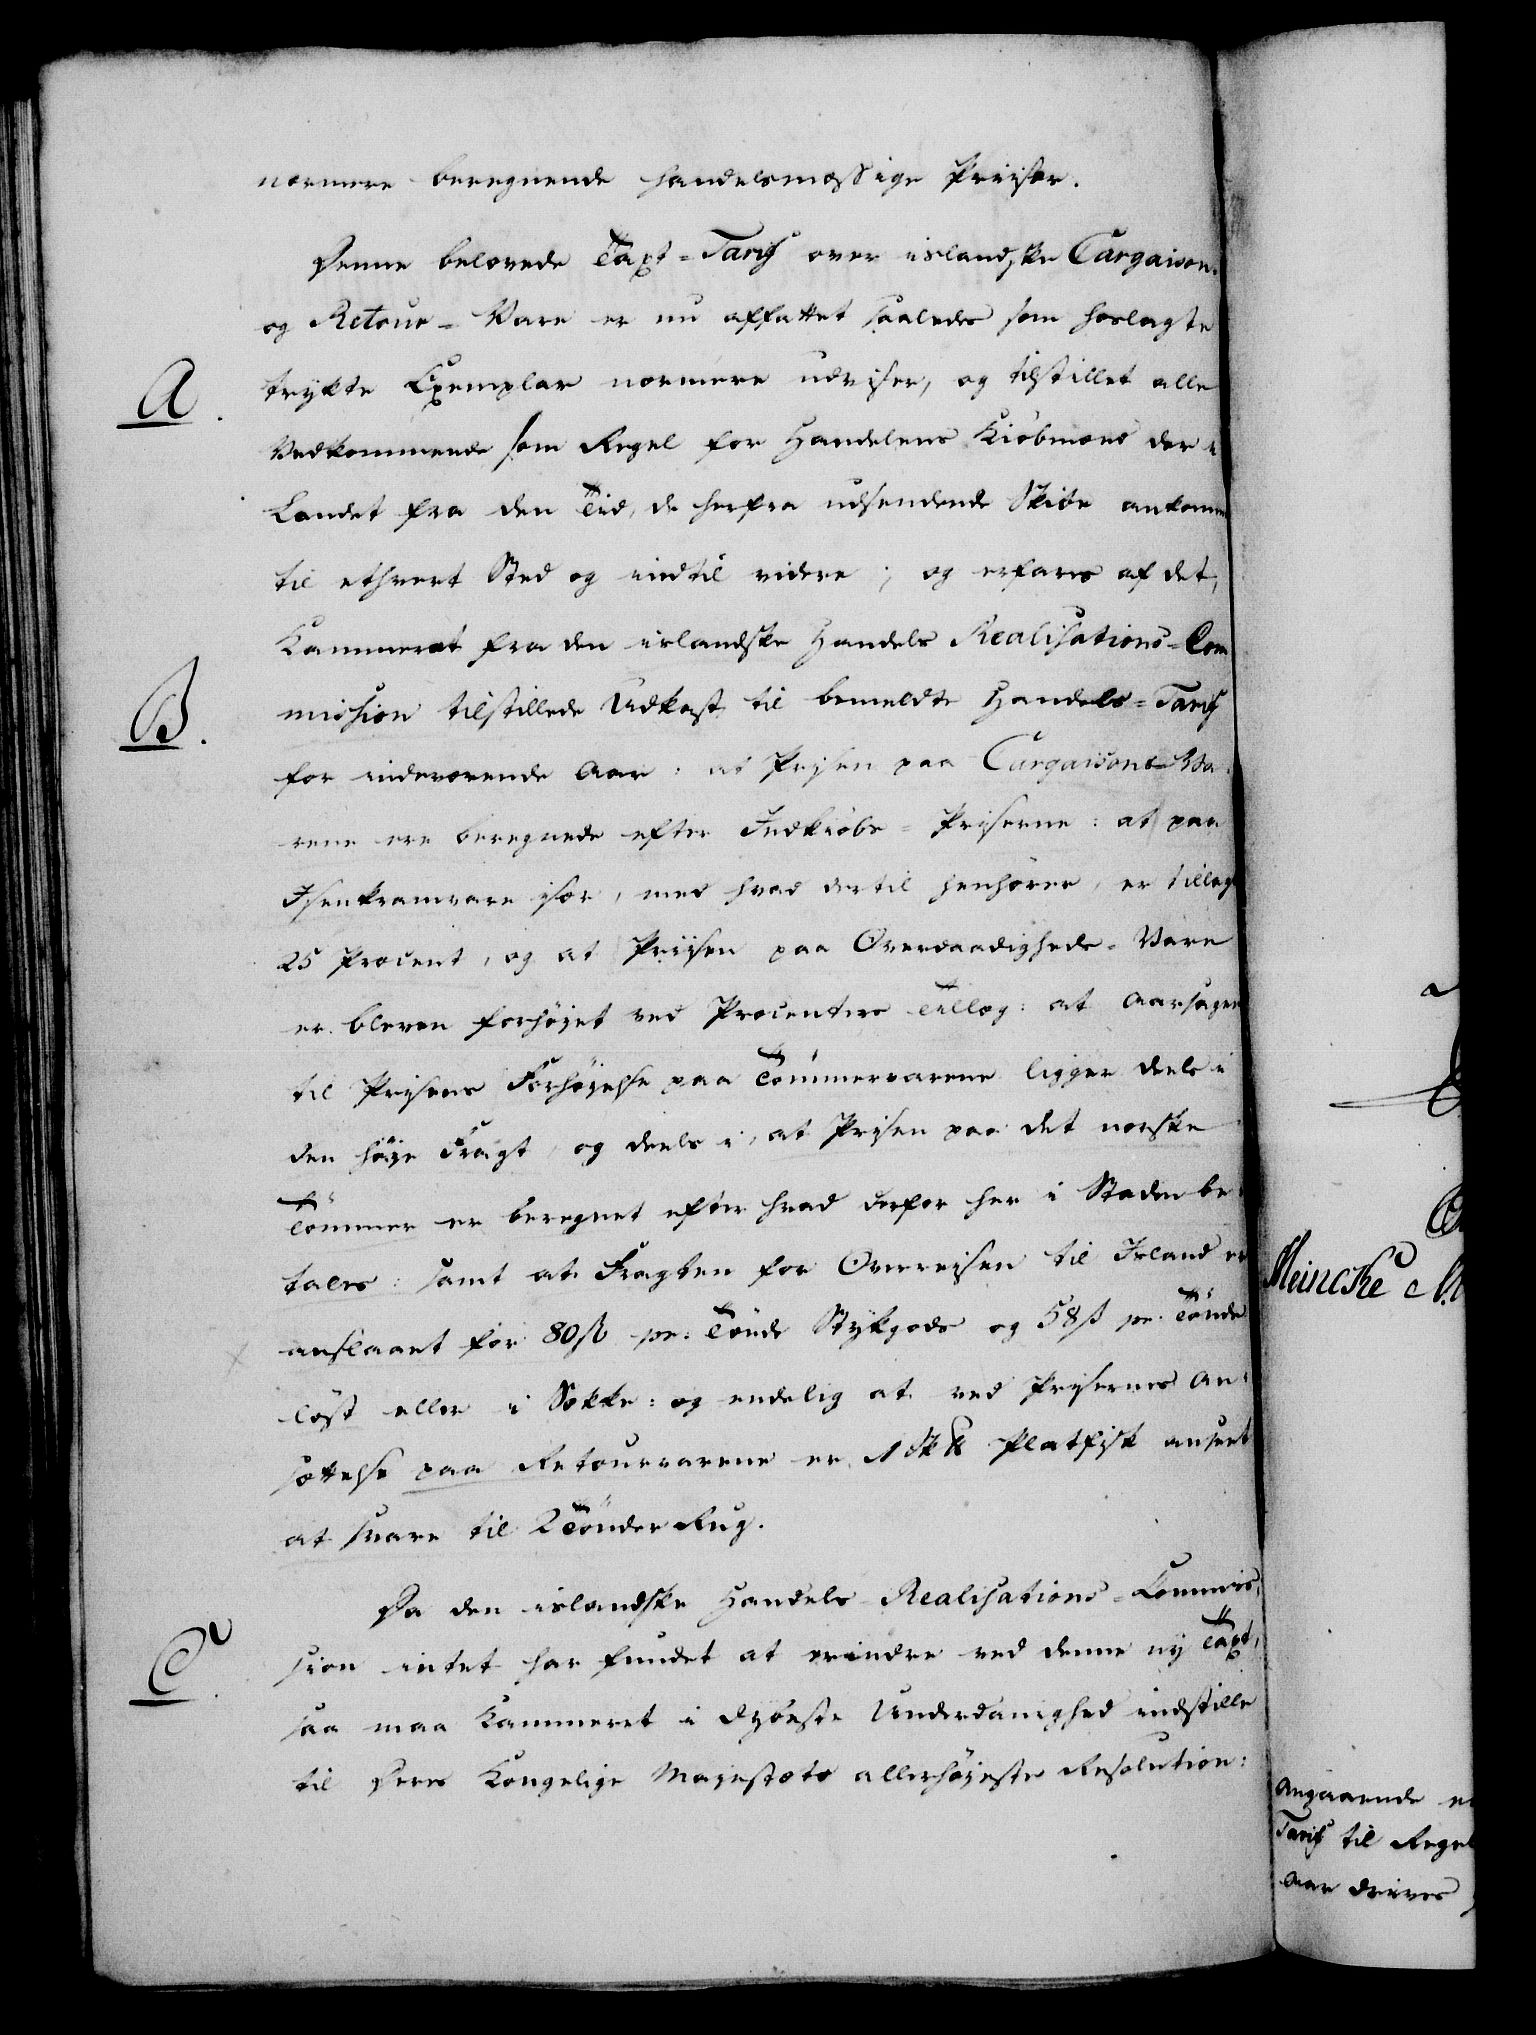 nærmere beregnende handelsmæssige Priiser.
Denne belovede Taxt-Tarif over islandske Cargaison-
og Retour-Vare er nu affattet saaledes som hoslagte
A.
trykte Exemplar nærmere udviser, og tilstillet alle
Vedkommende som Regel for Handelens Kiöbmænd der i
Landet fra den Tid, de herfra udsendende Skibe ankomme
til ethvert Sted og indtil videre; og erfares af det,
Kammeret fra den islandske Handels Realisations-Com
B.
mission tilstillede Udkast til bemeldte Handels-Tarif
for indeværende Aar: at Prisen paa Cargaisons-Va-
rene ere beregnede efter Indkiöbs-Priserne: at paa
Isenkramvare især, med hvad dertil henhörer, er tillagt
25 Procent, og at Priisen paa Overdaadigheds-Vare
er bleven forhöjet ved Procenters Tillæg: at Aarsagen
til Prisens Forhöjelse paa Tömmervarene ligger deels i
den höje Fragt, og deels i, at Prisen paa det norske
Tömmer er beregnet efter hvad derfor her i Staden be-
tales: samt at Fragten for Overreisen til Island er
anslaaet for 80 ß pr. Tönde Stykgods og 58 ß pr. Tönde
löst eller i Sække: og endelig at ved Prisernes An-
sættelse paa Retourvarene er 1 Sk℔ Platfisk anseet
at svare til 2 Tönder Rug.
Da den islandske Handels Realisations-Commis-
C.
sion intet har fundet at erindre ved denne ny Taxt,
saa maa Kammeret i dybeste Underdanighed indstille
til Deres Kongelige Majestæts allerhöjeste Resolution:
Meincke
Angaaende
Tarif til Regel
Aar drives